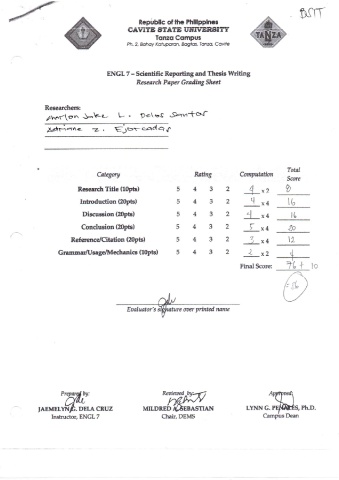 BSIT
Republic of the Philippines
CAVITE STATE UNIVERSITY
Tanza Campus
Ph. 2, Bahay Katuparan, Bagtas, Tanza, Cavite
TANZA
ENGL 7 – Scientific Reporting and Thesis Writing
Research Paper Grading Sheet
Researchers:
Jake L. Delos Santos
Adrianne Z. Ejercadas
Category Rating Computation Total Score
Research Title (10pts) 5 4 3 2 4 x 2 8
Introduction (20pts) 5 4 3 2 4 x 4 16
Discussion (20pts) 5 4 3 2 4 x 4 16
Conclusion (20pts) 5 4 3 2 5 x 4 20
Reference/Citation (20pts) 5 4 3 2 3 x 4 12
Grammar/Usage/Mechanics (10pts) 5 4 3 2 2 x 2 4
Final Score: 76 + 10
= 86
Evaluator's signature over printed name
Prepared by: Reviewed by: Approved:
JAEMELYN G. DELA CRUZ MILDRED A. SEBASTIAN LYNN G. PEÑALES, Ph.D.
Instructor, ENGL 7 Chair, DEMS Campus Dean